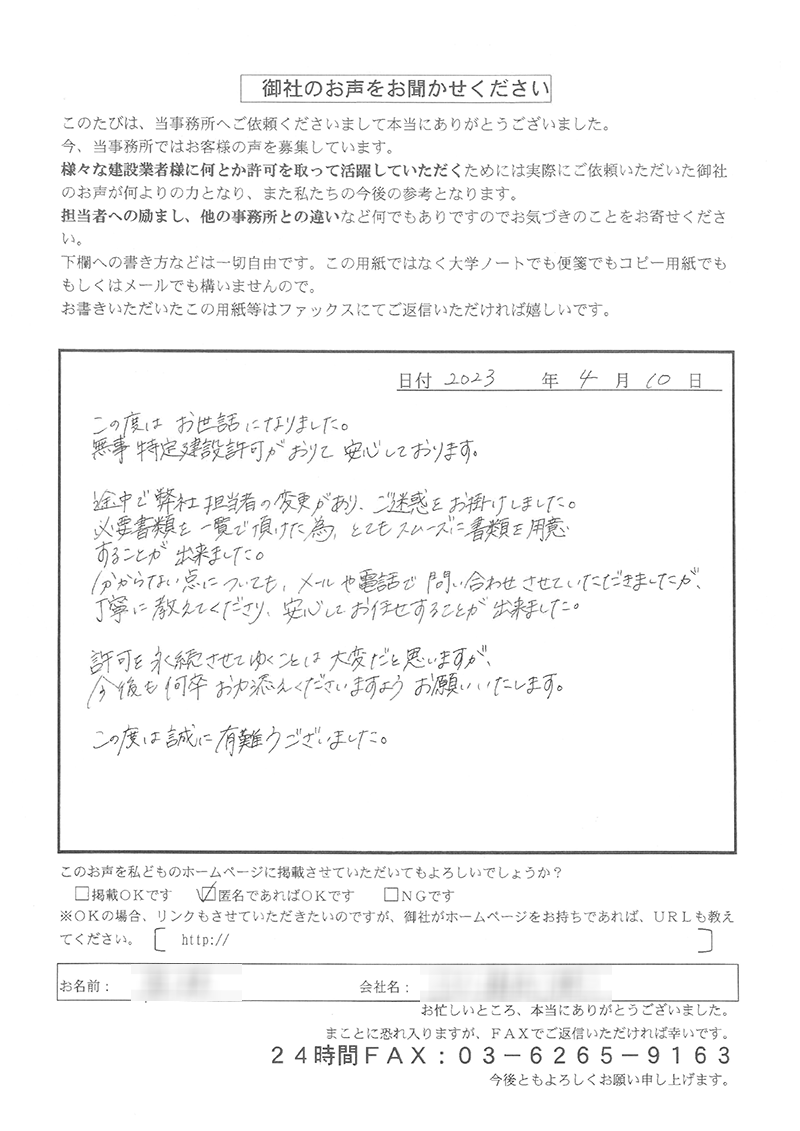 御社のお声をお聞かせください
このたびは、当事務所へご依頼くださいまして本当にありがとうございました。
今、当事務所ではお客様の声を募集しています。
様々な建設業者様に何とか許可を取って活躍していただくためには実際にご依頼いただいた御社
のお声が何よりの力となり、また私たちの今後の参考となります。
担当者への励まし、他の事務所との違いなど何でもありですのでお気づきのことをお寄せくださ
い。
下欄への書き方などは一切自由です。この用紙ではなく大学ノートでも便箋でもコピー用紙でも
もしくはメールでも構いませんので。
お書きいただいたこの用紙等はファックスにてご返信いただければ嬉しいです。
日付 2023 年 4 月 10 日
この度は お世話になりました。
無事 特定建設許可がおりて 安心しております。
途中で弊社担当者の変更があり、ご迷惑をお掛けしました。
必要書類を一覧で頂けた為、とてもスムーズに書類を用意
することが 出来ました。
分からない点についても、メールや電話で 問い合わせさせていただきましたが、
丁寧に教えてくださり、安心してお任せすることが 出来ました。
許可を永続させてゆくことは 大変だと思いますが、
今後も何卒 お力添えくださいますよう お願いいたします。
この度は誠に有難うございました。
このお声を私どものホームページに掲載させていただいてもよろしいでしょうか？
□掲載ＯＫです ☑匿名であればＯＫです □ＮＧです
※ＯＫの場合、リンクもさせていただきたいのですが、御社がホームページをお持ちであれば、ＵＲＬも教え
てください。 [ http:// ]
お名前： 会社名：
お忙しいところ、本当にありがとうございました。
まことに恐れ入りますが、ＦＡＸでご返信いただければ幸いです。
２４時間ＦＡＸ：０３－６２６５－９１６３
今後ともよろしくお願い申し上げます。